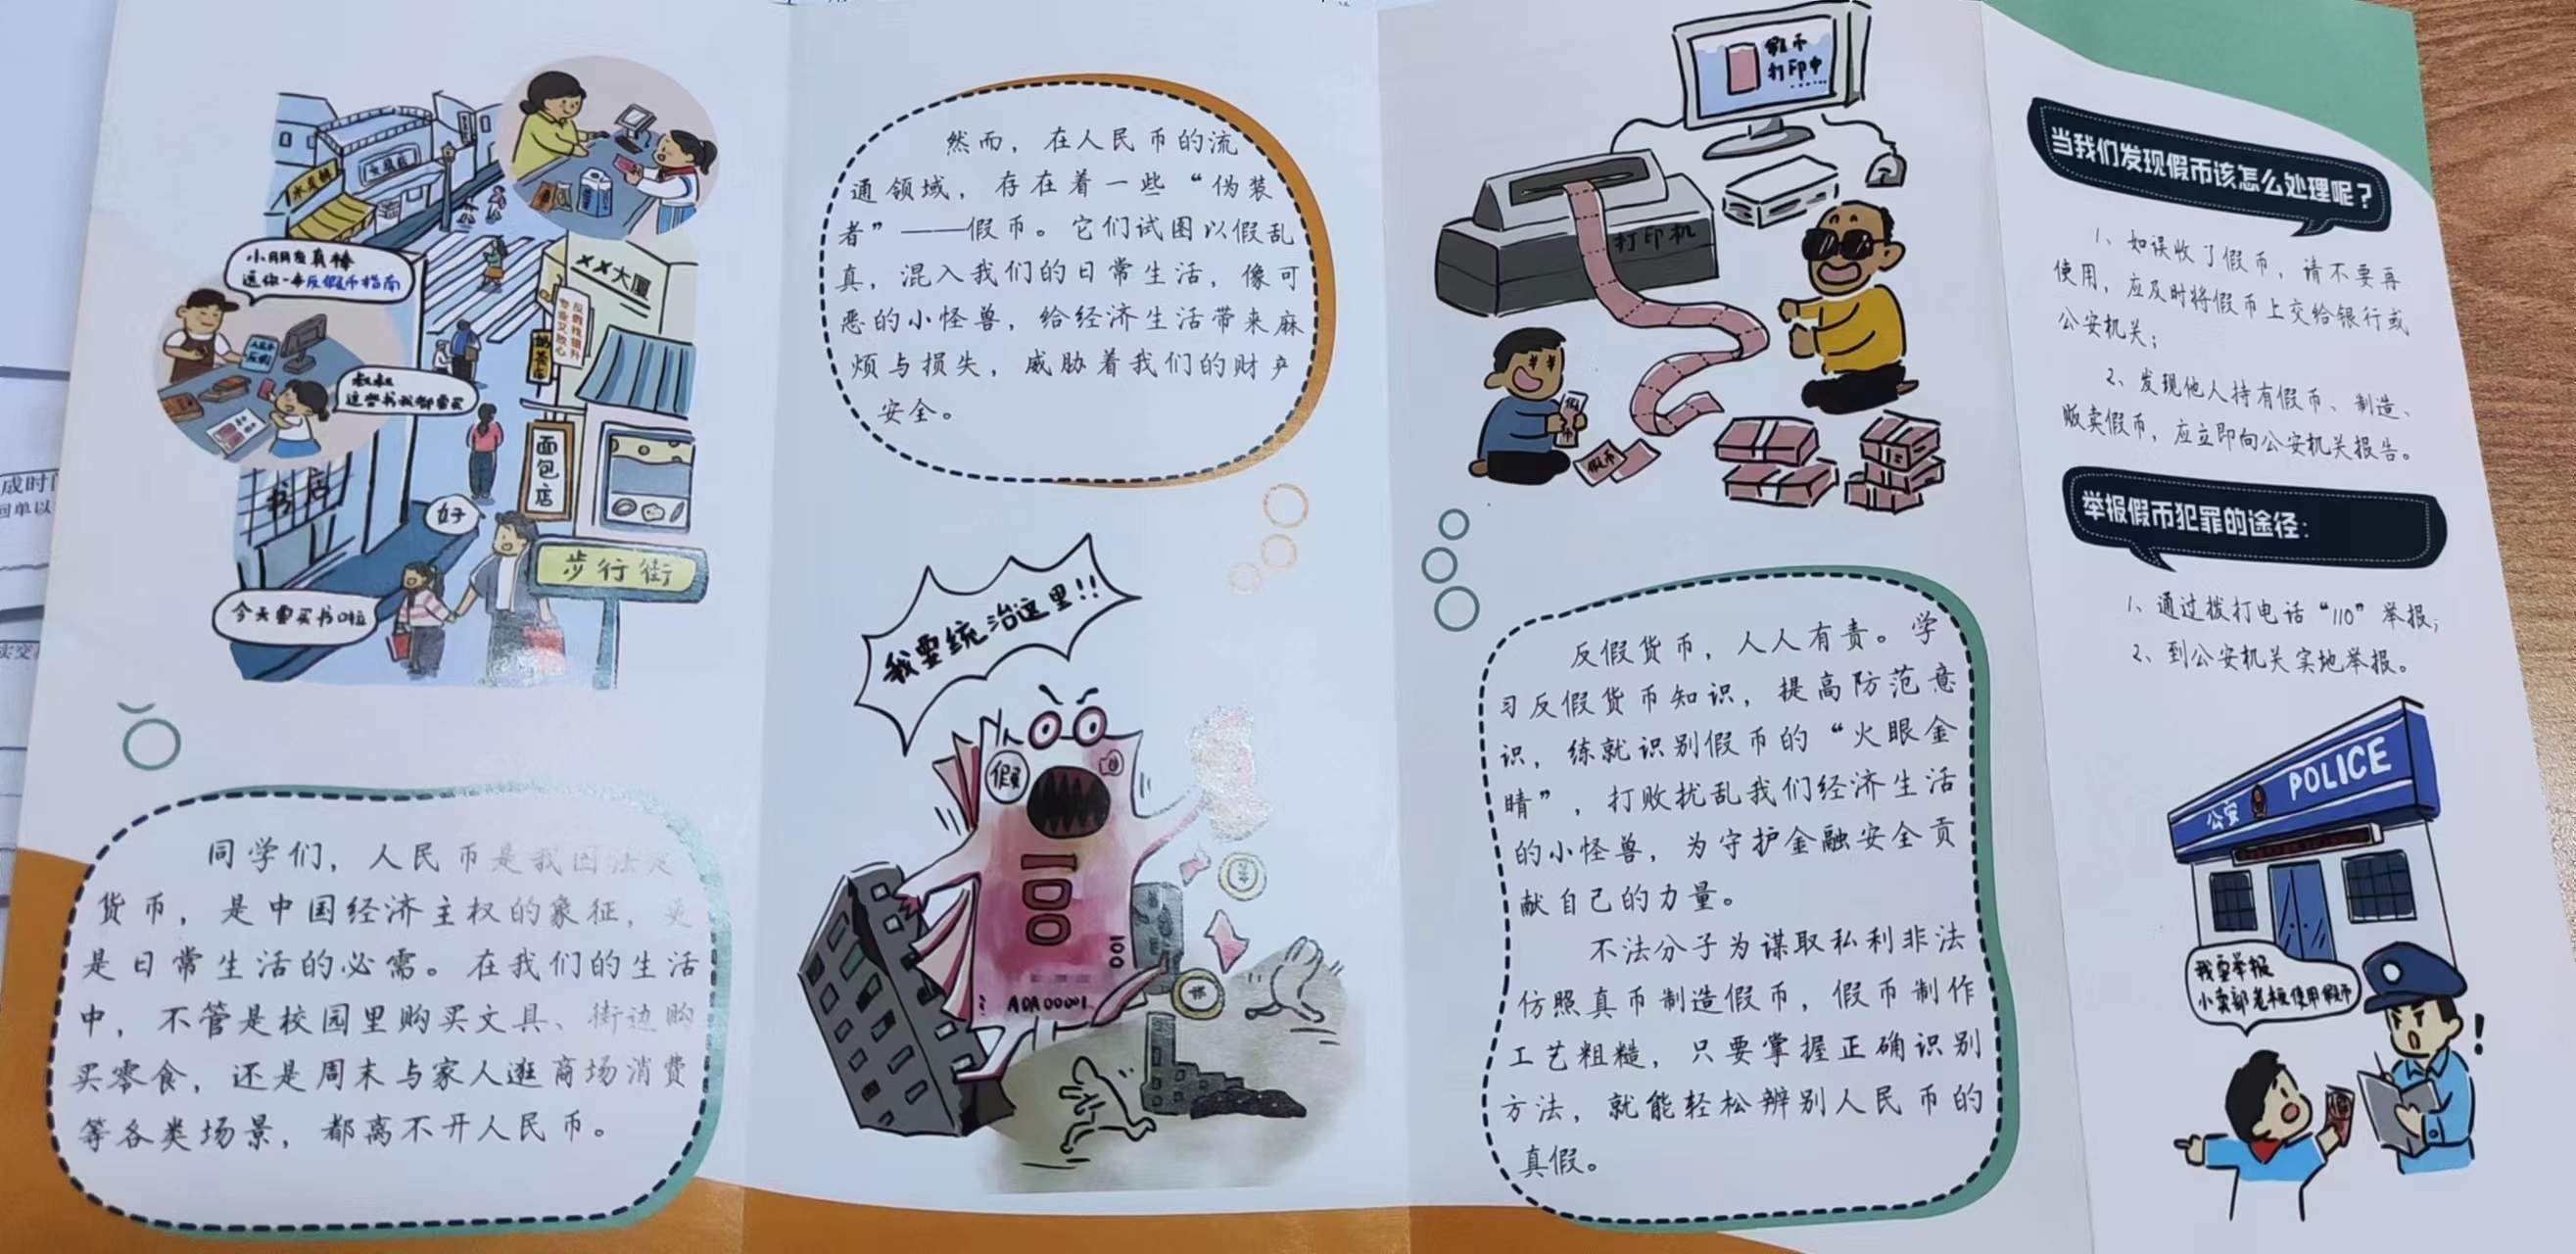 水果铺
文具店
小朋友真棒
送你一本反假币指南
人民币
反假
叔叔
这些书我都要买
XX大厦
反假技提升
专业又放心
奶茶店
面包店
书店
好
步行街
今天要买书啦
同学们，人民币是我国法定
货币，是中国经济主权的象征，更
是日常生活的必需。在我们的生活
中，不管是校园里购买文具、街边购
买零食，还是周末与家人逛商场消费
等各类场景，都离不开人民币。
然而，在人民币的流
通领域，存在着一些“伪装
者”——假币。它们试图以假乱
真，混入我们的日常生活，像可
恶的小怪兽，给经济生活带来麻
烦与损失，威胁着我们的财产
安全。
我要统治这里!!
假
100
100
ADA00001
假币
打印中
打印机
假币
假币
反假货币，人人有责。学
习反假货币知识，提高防范意
识，练就识别假币的“火眼金
睛”，打败扰乱我们经济生活
的小怪兽，为守护金融安全贡
献自己的力量。
不法分子为谋取私利非法
仿照真币制造假币，假币制作
工艺粗糙，只要掌握正确识别
方法，就能轻松辨别人民币的
真假。
当我们发现假币该怎么处理呢？
1、如误收了假币，请不要再
使用，应及时将假币上交给银行或
公安机关；
2、发现他人持有假币、制造、
贩卖假币，应立即向公安机关报告。
举报假币犯罪的途径：
1、通过拨打电话“110”举报；
2、到公安机关实地举报。
公安 POLICE
我要举报
小卖部老板使用假币
!
成时间
回单以
实交